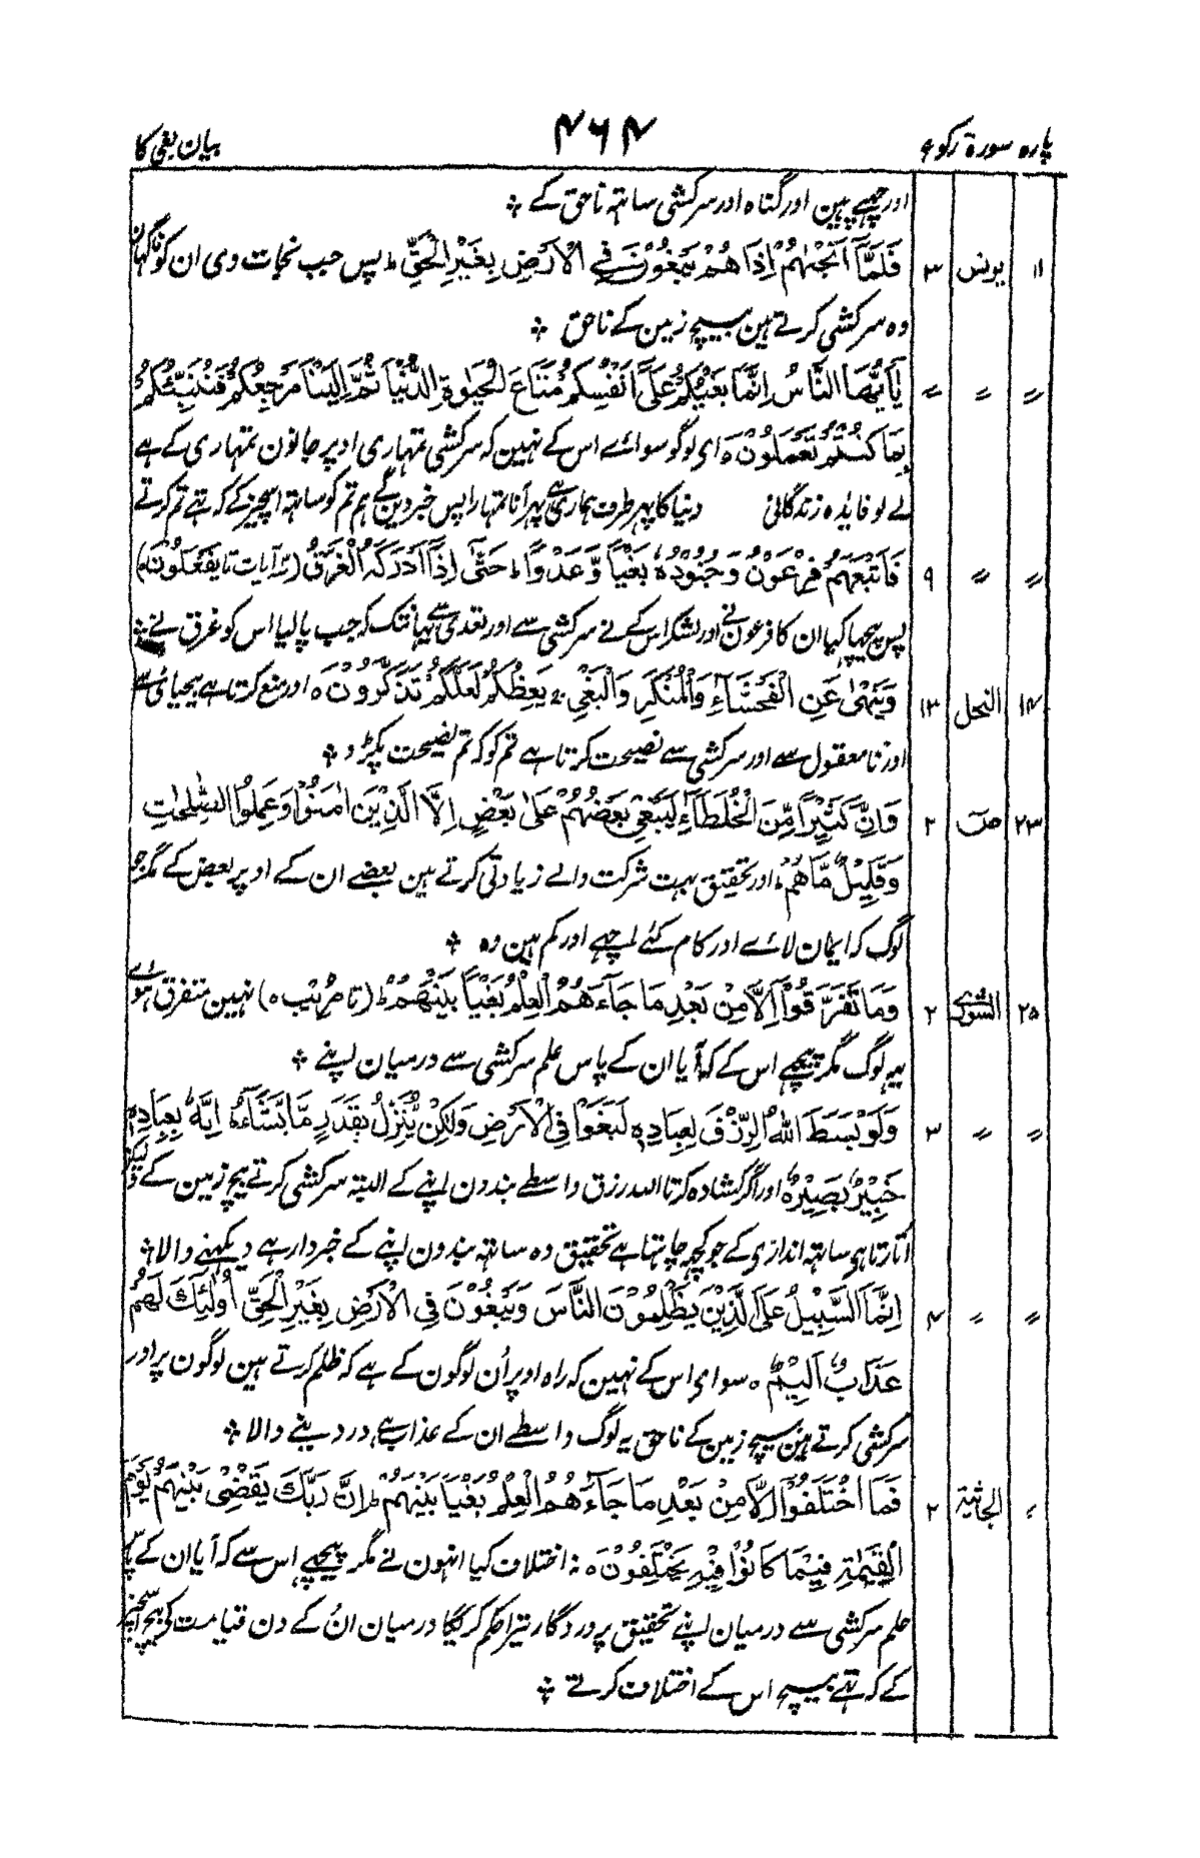 پارہ سورۃ رکوع ۴۶۴ بیان بغی کا
اور چھپے ہین اور گناہ اور سرکشی ساتہہ ناحق کے ۞
۱۱ یونس ۳ فَلَمَّآ اَنْجٰىہُمْ اِذَا ھُمْ یَبْغُوْنَ فِی الْاَرْضِ بِغَیْرِ الْحَقِّ ؕ پس جب نجات دی ان کو ناگہان
وہ سرکشی کرتے ہین بیچ زمین کے ناحق ۞
〃 〃 〃 یٰٓاَیُّھَا النَّاسُ اِنَّمَا بَغْیُکُمْ عَلٰٓی اَنْفُسِکُمْ مَّتَاعَ الْحَیٰوۃِ الدُّنْیَا ثُمَّ اِلَیْنَا مَرْجِعُکُمْ فَنُنَبِّئُکُمْ
بِمَا کُنْتُمْ تَعْمَلُوْنَ ہ ای لوگو سوائے اس کے نہین کہ سرکشی تمہاری اوپر جانون تمہاری کے ہے
لے لو فایدہ زندگانی دنیا کا پہر طرف ہماری ہے پہر آنا تمہارا پس خبر دین گے ہم تم کو ساتہہ اسچیز کے کہ تہے تم کرتے
〃 〃 ۹ فَاَتْبَعَھُمْ فِرْعَوْنُ وَجُنُوْدُہٗ بَغْیًا وَّعَدْوًا ؕ حَتّٰٓی اِذَآ اَدْرَکَہُ الْغَرَقُ
پس پیچہا کیا ان کا فرعون نے اور لشکر اس کے نے سرکشی سے اور تعدی سے یہانتک کہ جب پا لیا اس کو غرق نے ۞
۱۴ النحل ۱۳ وَیَنْھٰی عَنِ الْفَحْشَآءِ وَالْمُنْکَرِ وَالْبَغْیِ ۚ یَعِظُکُمْ لَعَلَّکُمْ تَذَکَّرُوْنَ ہ اور منع کرتا ہے بیحیائی سے
اور نامعقول سے اور سرکشی سے نصیحت کرتا ہے تم کو کہ تم نصیحت پکڑو ۞
۲۳ صٓ ۲ وَاِنَّ کَثِیْرًا مِّنَ الْخُلَطَآءِ لَیَبْغِیْ بَعْضُھُمْ عَلٰی بَعْضٍ اِلَّا الَّذِیْنَ اٰمَنُوْا وَعَمِلُوا الصّٰلِحٰتِ
وَقَلِیْلٌ مَّا ھُمْ ؕ اور تحقیق بہت شرکت والے زیادتی کرتے ہین بعضے ان کے اوپر بعض کے مگر جو
لوگ کہ ایمان لائے اور کام کئے اچہے اور کم ہین وہ ۞
۲۵ الشوریٰ ۲ وَمَا تَفَرَّقُوْٓا اِلَّا مِنْۢ بَعْدِ مَا جَآءَھُمُ الْعِلْمُ بَغْیًۢا بَیْنَھُمْ ؕ (تا مُرِیْب ہ) نہین متفرق ہوئے
یہ لوگ مگر پیچہے اس کے کہ آیا ان کے پاس علم سرکشی سے درمیان اپنے ۞
〃 〃 ۳ وَلَوْ بَسَطَ اللّٰہُ الرِّزْقَ لِعِبَادِہٖ لَبَغَوْا فِی الْاَرْضِ وَلٰکِنْ یُّنَزِّلُ بِقَدَرٍ مَّا یَشَآءُ ؕ اِنَّہٗ بِعِبَادِہٖ
خَبِیْرٌۢ بَصِیْرٌ ہ اور اگر کشادہ کرتا اللہ رزق واسطے بندون اپنے کے البتہ سرکشی کرتے بیچ زمین کے ولیکن
اتارتا ہی ساتہہ اندازی کے جو کچہہ چاہتا ہے تحقیق وہ ساتہہ بندون اپنے کے خبردار ہے دیکہنے والا ۞
〃 〃 ۴ اِنَّمَا السَّبِیْلُ عَلَی الَّذِیْنَ یَظْلِمُوْنَ النَّاسَ وَیَبْغُوْنَ فِی الْاَرْضِ بِغَیْرِ الْحَقِّ ؕ اُولٰٓئِکَ لَھُمْ
عَذَابٌ اَلِیْمٌ ہ سوای اس کے نہین کہ راہ اوپر اُن لوگون کے ہے کہ ظلم کرتے ہین لوگون پر اور
سرکشی کرتے ہین بیچ زمین کے ناحق یہ لوگ واسطے ان کے عذاب ہے درد دینے والا ۞
〃 الجاثیۃ ۲ فَمَا اخْتَلَفُوْٓا اِلَّا مِنْۢ بَعْدِ مَا جَآءَھُمُ الْعِلْمُ بَغْیًۢا بَیْنَھُمْ ؕ اِنَّ رَبَّکَ یَقْضِیْ بَیْنَھُمْ یَوْمَ
الْقِیٰمَۃِ فِیْمَا کَانُوْا فِیْہِ یَخْتَلِفُوْنَ ہ نہ اختلاف کیا انہون نے مگر پیچہے اس سے کہ آیا ان کے پاس
علم سرکشی سے درمیان اپنے تحقیق پروردگار تیرا حکم کریگا درمیان اُن کے دن قیامت کے بیچ اسچیز
کے کہ تہے بیچ اس کے اختلاف کرتے ۞